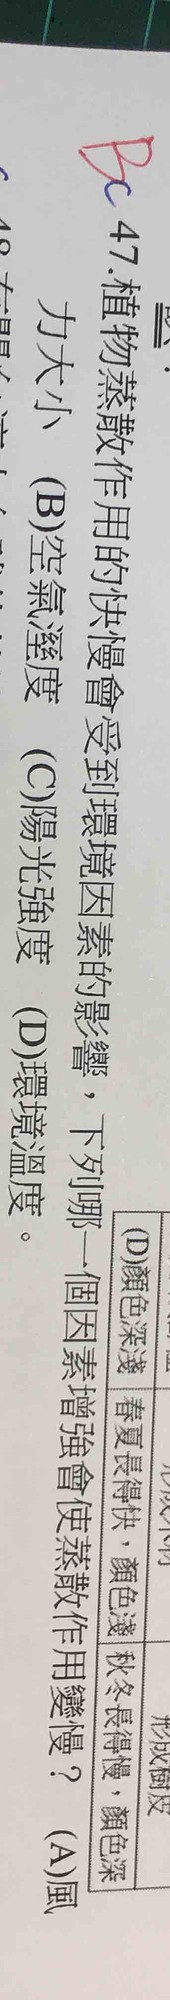 形成樹皮
(D)顏色深淺 春夏長得快，顏色淺 秋冬長得慢，顏色深
Bc 47.植物蒸散作用的快慢會受到環境因素的影響，下列哪一個因素增強會使蒸散作用變慢？ (A)風
力大小 (B)空氣溼度 (C)陽光強度 (D)環境溫度。